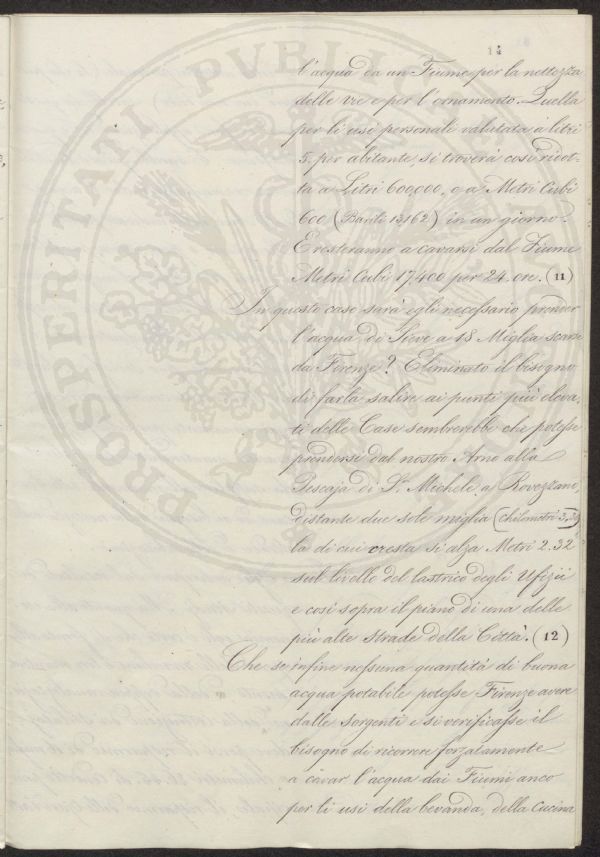 14
PROSPERITATI PVBLICAE
l'acqua da un Fiume per la nettezza
delle vie e per l'ornamento. Quella
per li usi personali valutata a litri
5. per abitante, si troverà così ridot-
ta a Litri 600000, o a Metri Cubi
600 (Barili 13,162) in un giorno.
E resteranno a cavarsi dal Fiume
Metri Cubi 17,400 per 24. ore. (11)
In questo caso sarà egli necessario prender
l'acqua di Sieve a 18 Miglia scarse
da Firenze? Eliminato il bisogno
di farla salire ai punti più eleva,
ti delle Case sembrerebbe che potesse
prendersi dal nostro Arno alla
Pescaja di S. Michele a Rovezzano,
distante due sole miglia (Chilometri 3,30)
la di cui cresta si alza Metri 2.32
sul livello del lastrico degli Ufizii
e così sopra il piano di una delle
più alte strade della Città. (12)
Che se infine nessuna quantità di buona
acqua potabile potesse Firenze avere
dalle sorgenti e si verificasse il
bisogno di ricorrere forzatamente
a cavar l'acqua dai Fiumi anco
per li usi della bevanda, della Cucina